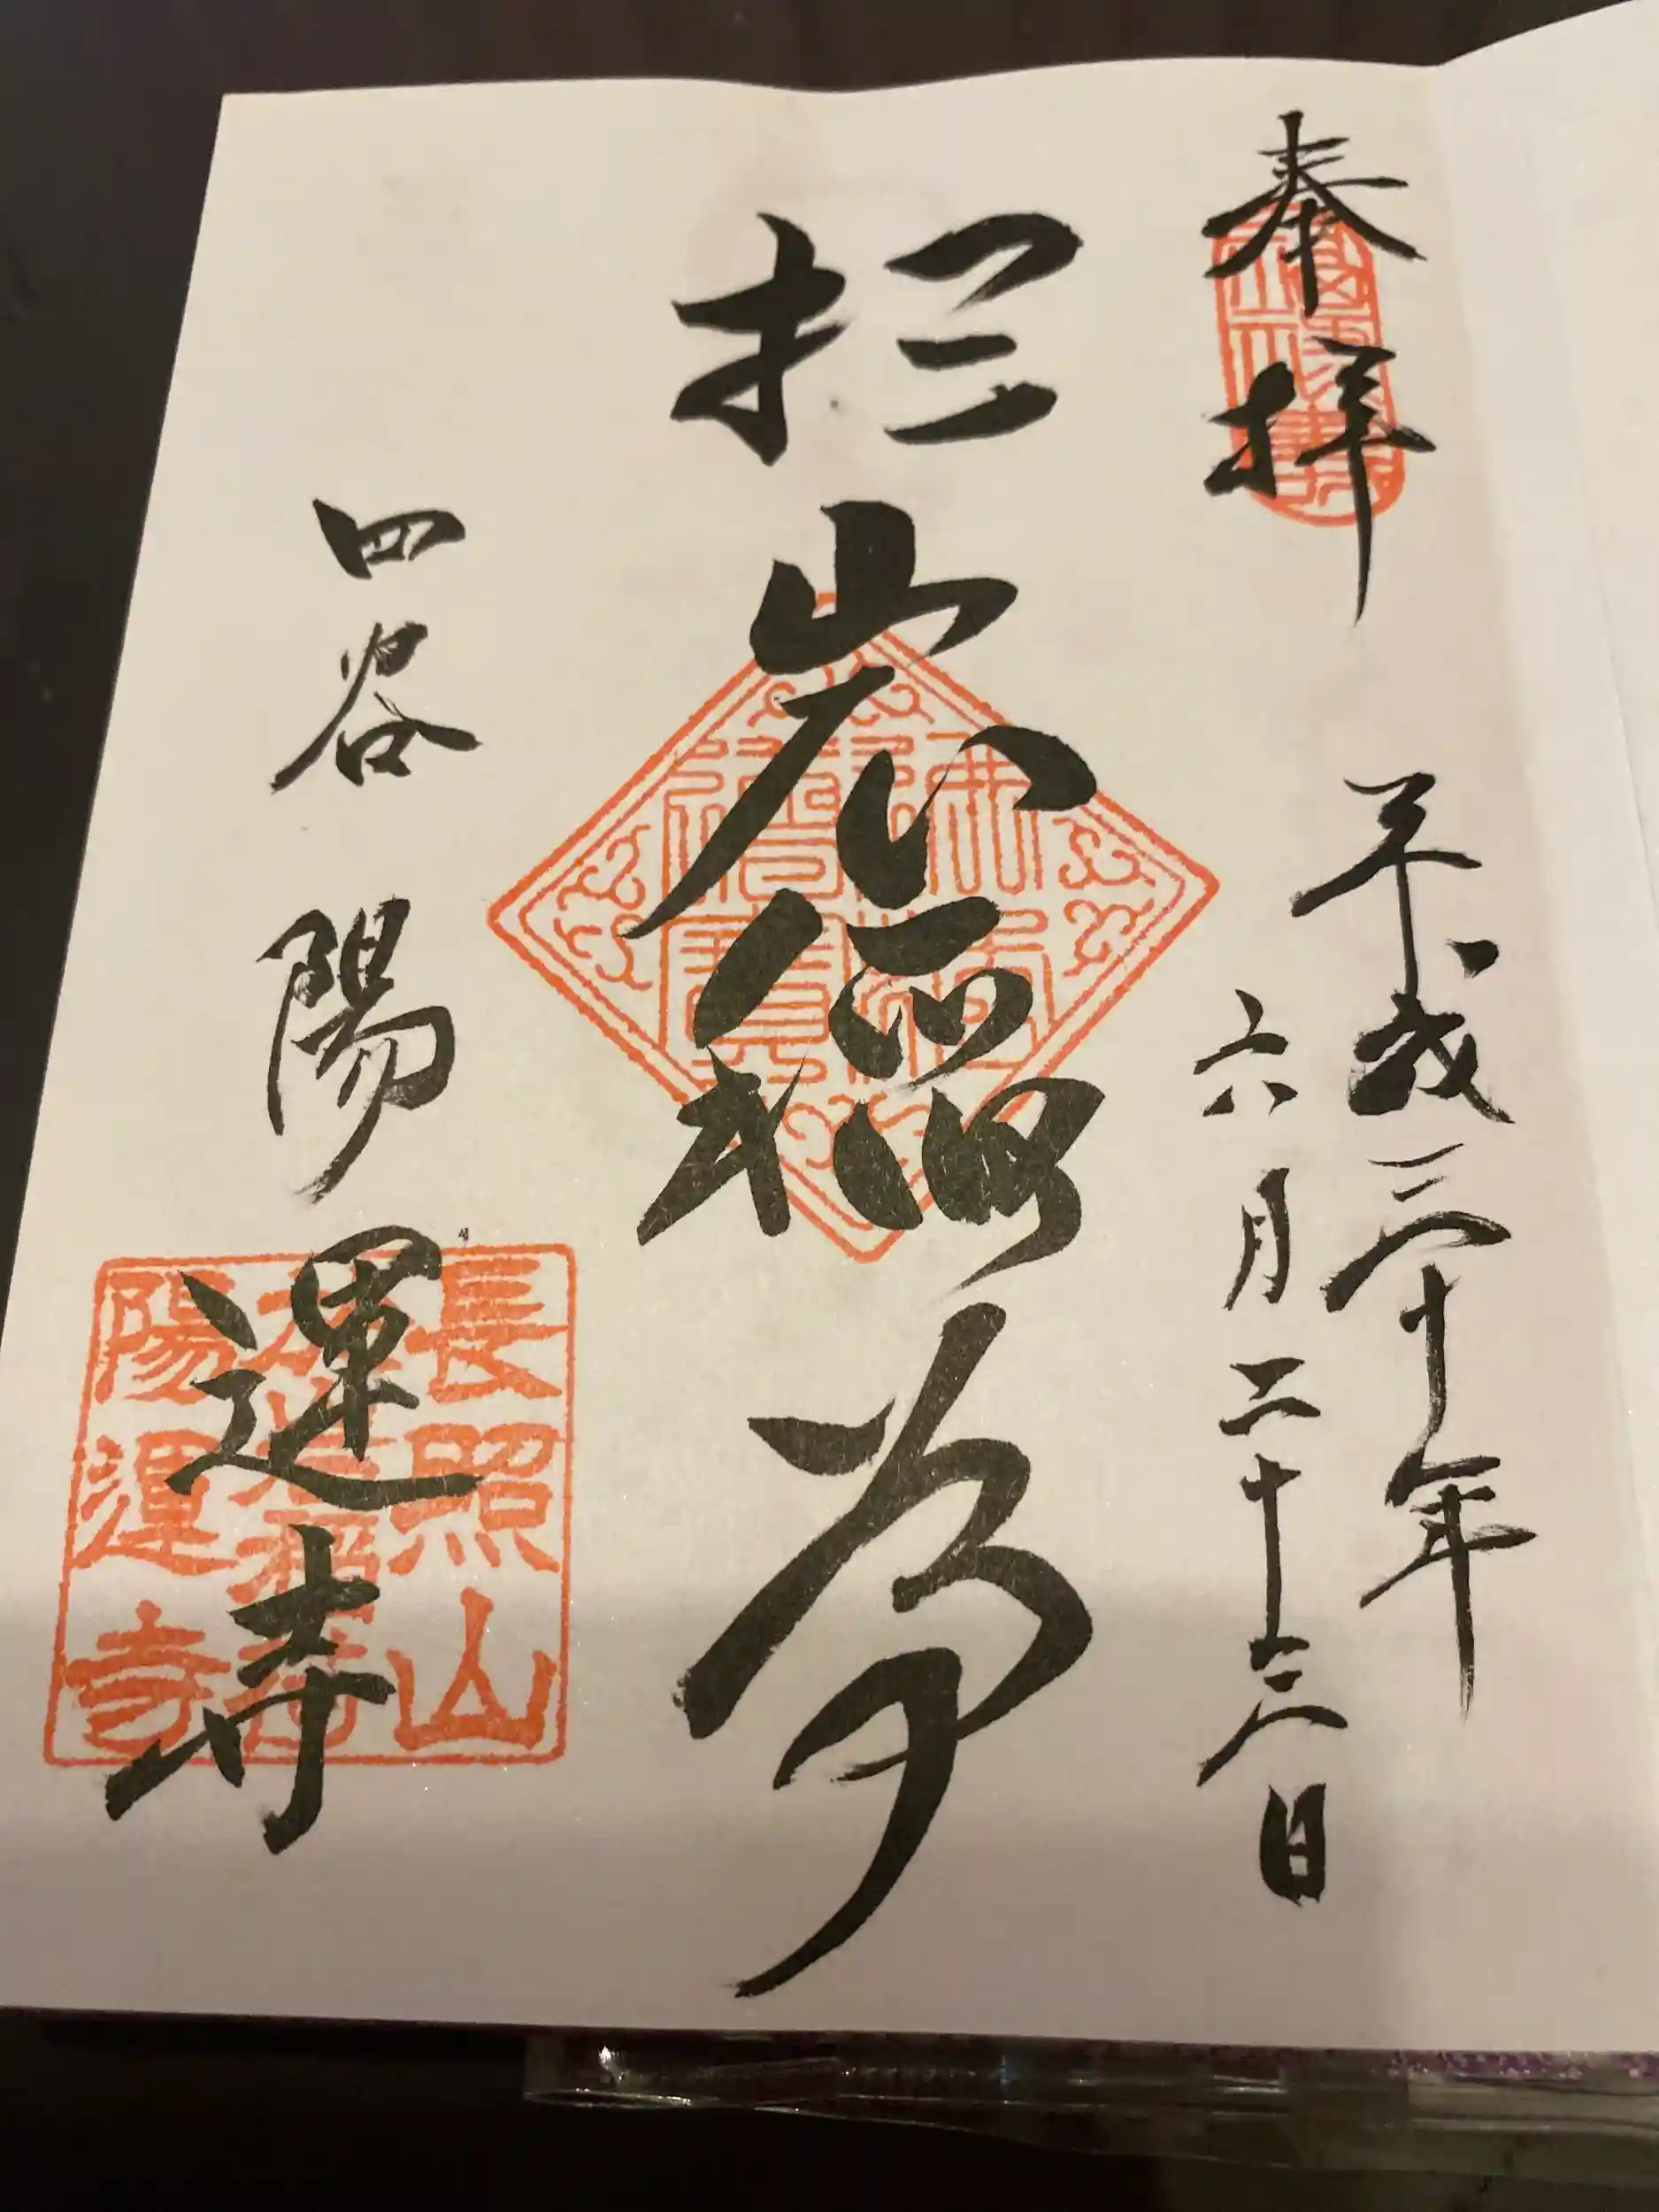 奉拝
平成三十年
六月二十三日
於岩稲荷
四谷 陽運寺
長照山
陽運寺